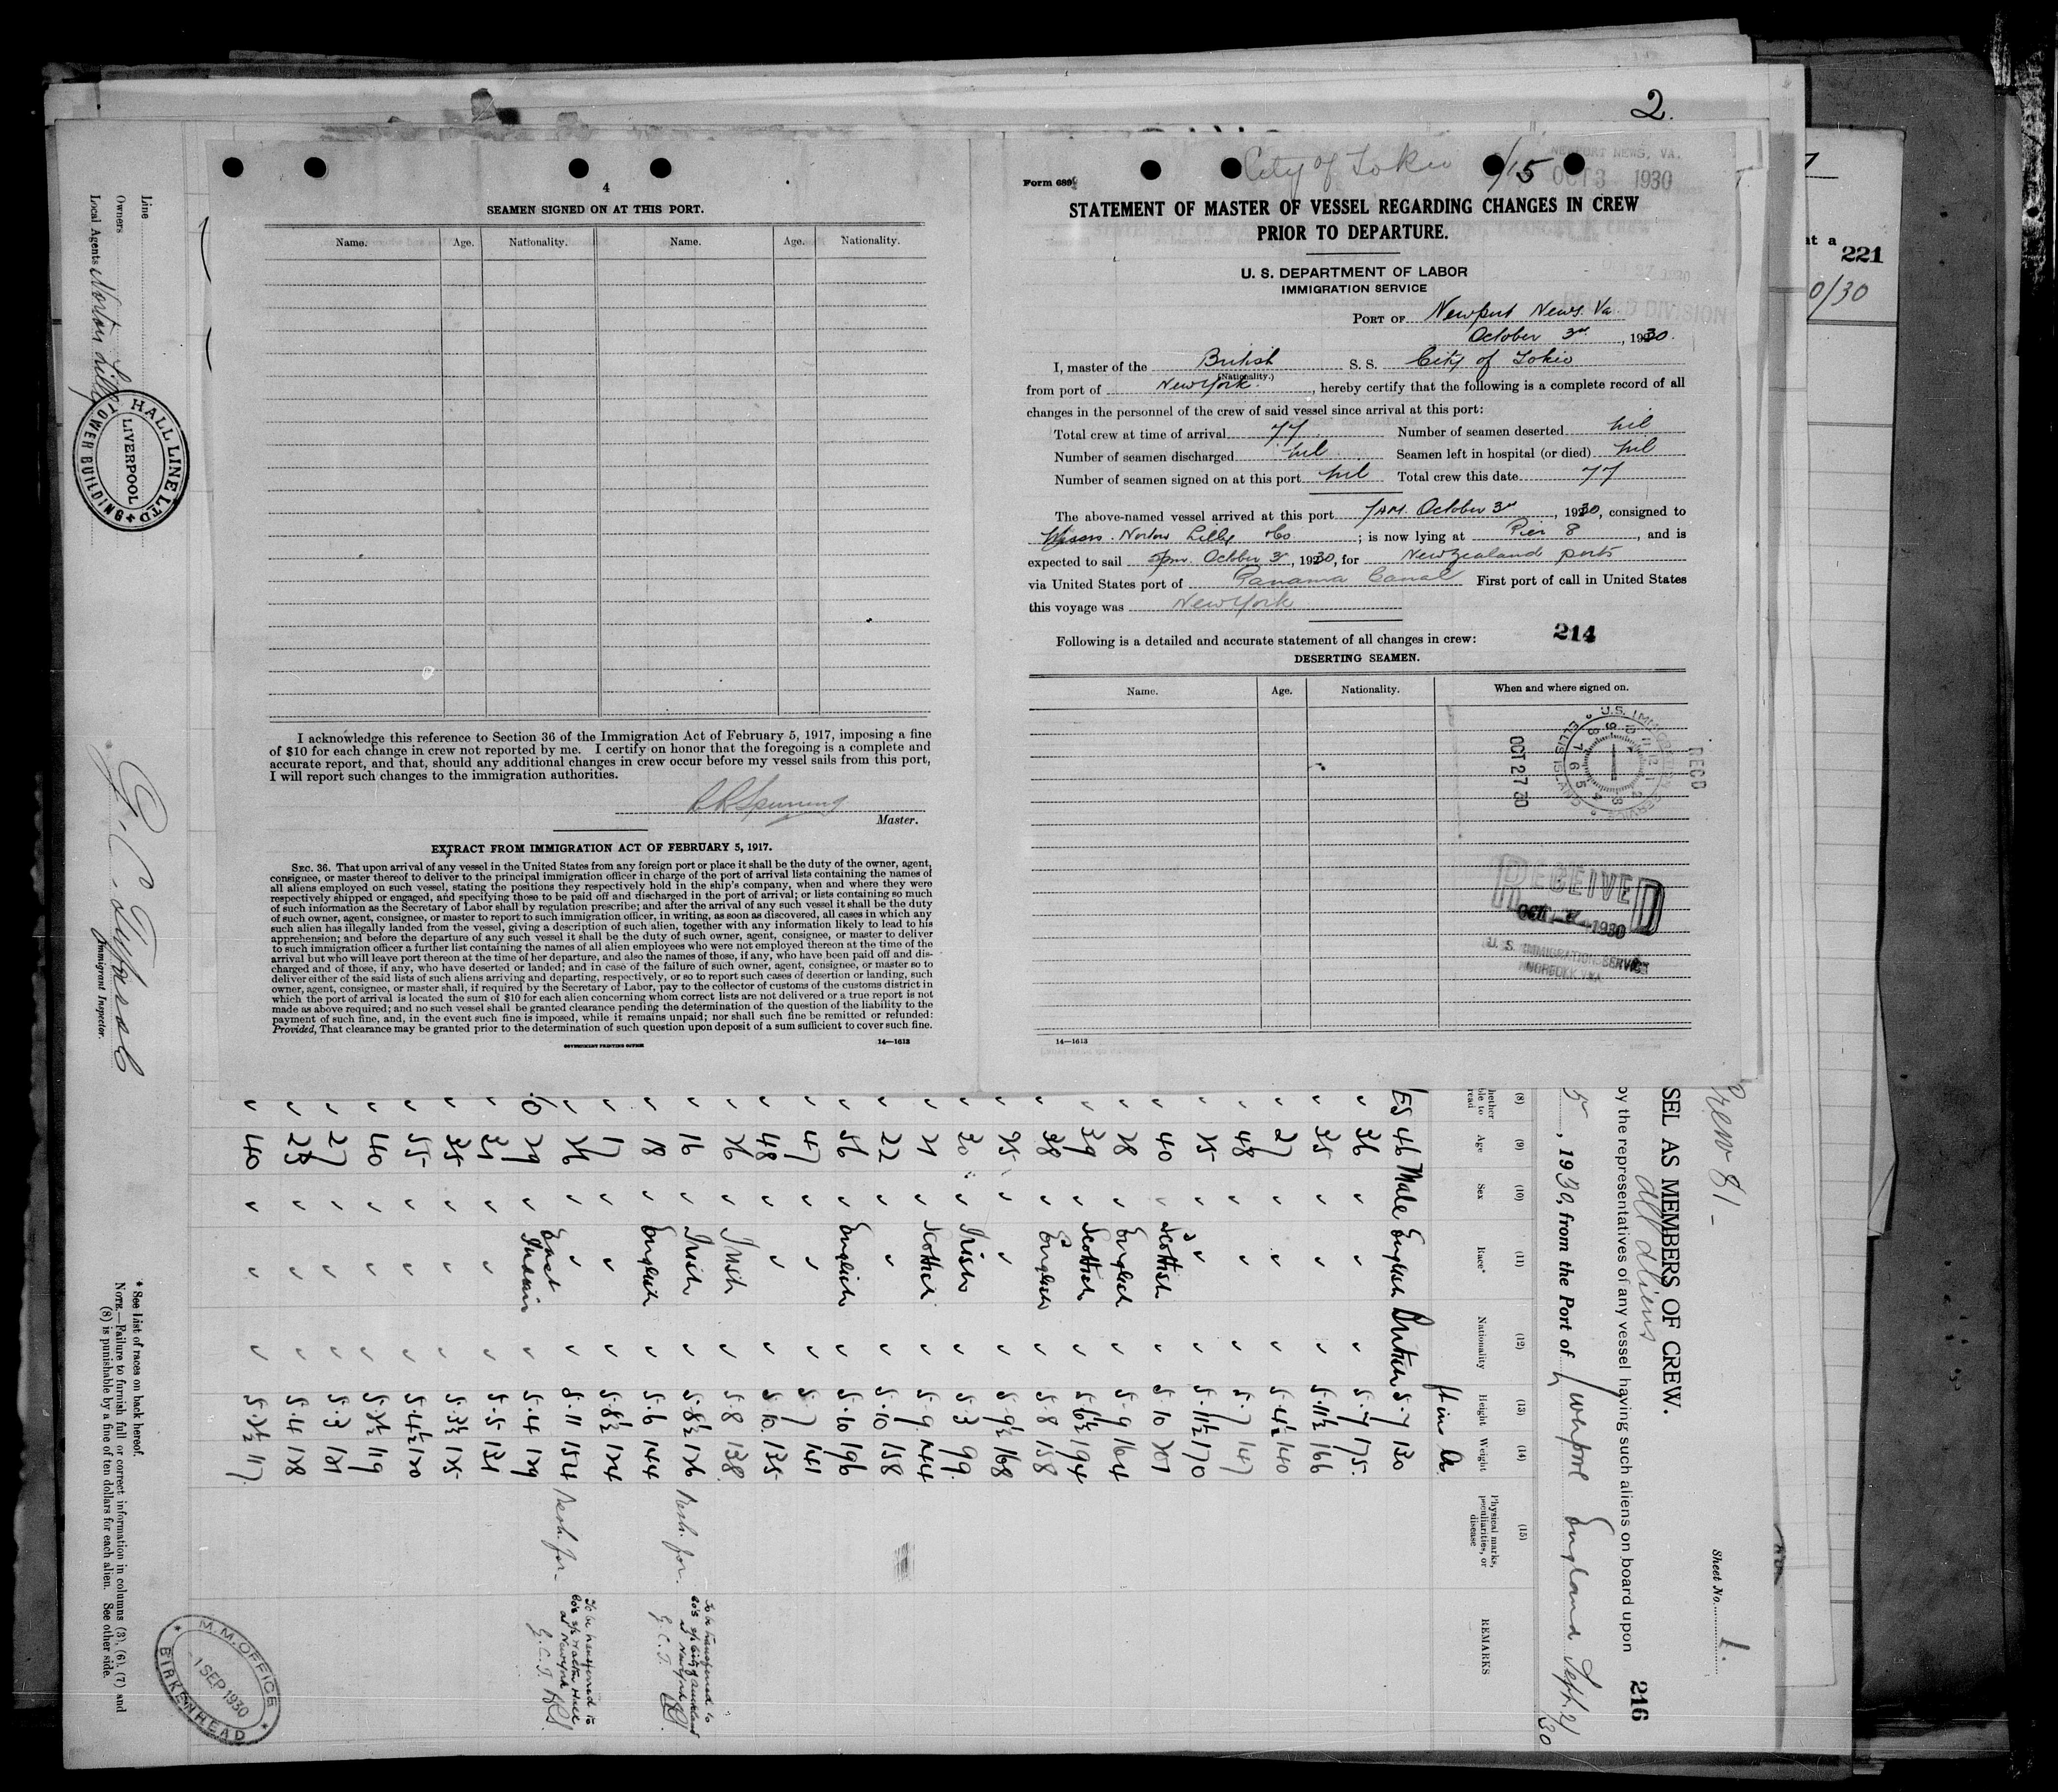 2.
4
SEAMEN SIGNED ON AT THIS PORT.
Name. Age. Nationality. Name. Age. Nationality.
I acknowledge this reference to Section 36 of the Immigration Act of February 5, 1917, imposing a fine
of $10 for each change in crew not reported by me. I certify on honor that the foregoing is a complete and
accurate report, and that, should any additional changes in crew occur before my vessel sails from this port,
I will report such changes to the immigration authorities.
Master.
EXTRACT FROM IMMIGRATION ACT OF FEBRUARY 5, 1917.
SEC. 36. That upon arrival of any vessel in the United States from any foreign port or place it shall be the duty of the owner, agent,
consignee, or master thereof to deliver to the principal immigration officer in charge of the port of arrival lists containing the names of
all aliens employed on such vessel, stating the positions they respectively hold in the ship's company, when and where they were
respectively shipped or engaged, and specifying those to be paid off and discharged in the port of arrival; or lists containing so much
of such information as the Secretary of Labor shall by regulation prescribe; and after the arrival of any such vessel it shall be the duty
of such owner, agent, consignee, or master to report to such immigration officer, in writing, as soon as discovered, all cases in which any
such alien has illegally landed from the vessel, giving a description of such alien, together with any information likely to lead to his
apprehension; and before the departure of any such vessel it shall be the duty of such owner, agent, consignee, or master to deliver
to such immigration officer a further list containing the names of all alien employees who were not employed thereon at the time of the
arrival but who will leave port thereon at the time of her departure, and also the names of those, if any, who have been paid off and dis-
charged and of those, if any, who have deserted or landed; and in case of the failure of such owner, agent, consignee, or master so to
deliver either of the said lists of such aliens arriving and departing, respectively, or so to report such cases of desertion or landing, such
owner, agent, consignee, or master shall, if required by the Secretary of Labor, pay to the collector of customs of the customs district in
which the port of arrival is located the sum of $10 for each alien concerning whom correct lists are not delivered or a true report is not
made as above required; and no such vessel shall be granted clearance pending the determination of the question of the liability to the
payment of such fine, and, in the event such fine is imposed, while it remains unpaid; nor shall such fine be remitted or refunded:
Provided, That clearance may be granted prior to the determination of such question upon deposit of a sum sufficient to cover such fine.
GOVERNMENT PRINTING OFFICE 14—1613
City of Tokio
NEWPORT NEWS, VA.
Form 689 OCT 3 1930
STATEMENT OF MASTER OF VESSEL REGARDING CHANGES IN CREW
PRIOR TO DEPARTURE.
U. S. DEPARTMENT OF LABOR
IMMIGRATION SERVICE
PORT OF Newport News. Va
October 3rd, 1930.
I, master of the British S. S. City of Tokio
(Nationality.)
from port of New York, hereby certify that the following is a complete record of all
changes in the personnel of the crew of said vessel since arrival at this port:
Total crew at time of arrival 77 Number of seamen deserted nil
Number of seamen discharged nil Seamen left in hospital (or died) nil
Number of seamen signed on at this port nil Total crew this date 77
The above-named vessel arrived at this port 7AM. October 3rd, 1930, consigned to
Messrs. Norton Lilly & Co; is now lying at Pier 8, and is
expected to sail 5pm. October 3rd, 1930, for New Zealand ports
via United States port of Panama Canal First port of call in United States
this voyage was New York
Following is a detailed and accurate statement of all changes in crew: 214
DESERTING SEAMEN.
Name. Age. Nationality. When and where signed on.
U.S. IMMIGRATION SERVICE ELLIS ISLAND
OCT 27 30
RECD
RECEIVED
1930
U. S. IMMIGRATION SERVICE
14—1613
at a 221
0/30
Crew 81 -
Sheet No. 1.
SEL AS MEMBERS OF CREW.
all aliens
by the representatives of any vessel having such aliens on board upon 216
5, 1930, from the Port of Liverpool England Sept. 21/30
(8) (9) (10) (11) (12) (13) (14) (15)
Age Sex Race* Nationality Height Weight Physical marks, peculiarities, or disease REMARKS
YES 46 Male English British 5-7 130
36 5-7 175
35 5-11½ 166
27 5-4½ 140
48 5-7 147
25 5-11½ 170
40 Scottish 5-10 201
28 English 5-9 164
39 Scottish 5-6½ 194
38 English 5-8 158
25 5-9½ 168
30 Irish 5-3 99
21 Scottish 5-9 144
22 5-10 158
56 English 5-10 196
47 5-7 141
48 5-10 135
26 Irish 5-8 138
16 Irish 5-8½ 126
To be transferred to
Co's s/s City of Auckland
at New York
G. C. T.
18 English 5-6 144
17 5-8½ 124
26 5-11 154
To be transferred to
at New York
G. C. T.
29 East Indian 5-4 129
21 5-5 131
25 5-3½ 125
55 5-4½ 120
40 5-2½ 119
27 5-3 121
28 5-4 128
40 5-2½ 117
* See List of races on back hereof.
NOTE.—Failure to furnish full or correct information in columns (3), (6), (7) and
(8) is punishable by a fine of ten dollars for each alien. See other side.
Line
Owners
Local Agents Norton Lilly
HALL LINE LTD
LIVERPOOL
TOWER BUILDING
Immigrant Inspector.
M.M. OFFICE
1 SEP 1930
BIRKENHEAD